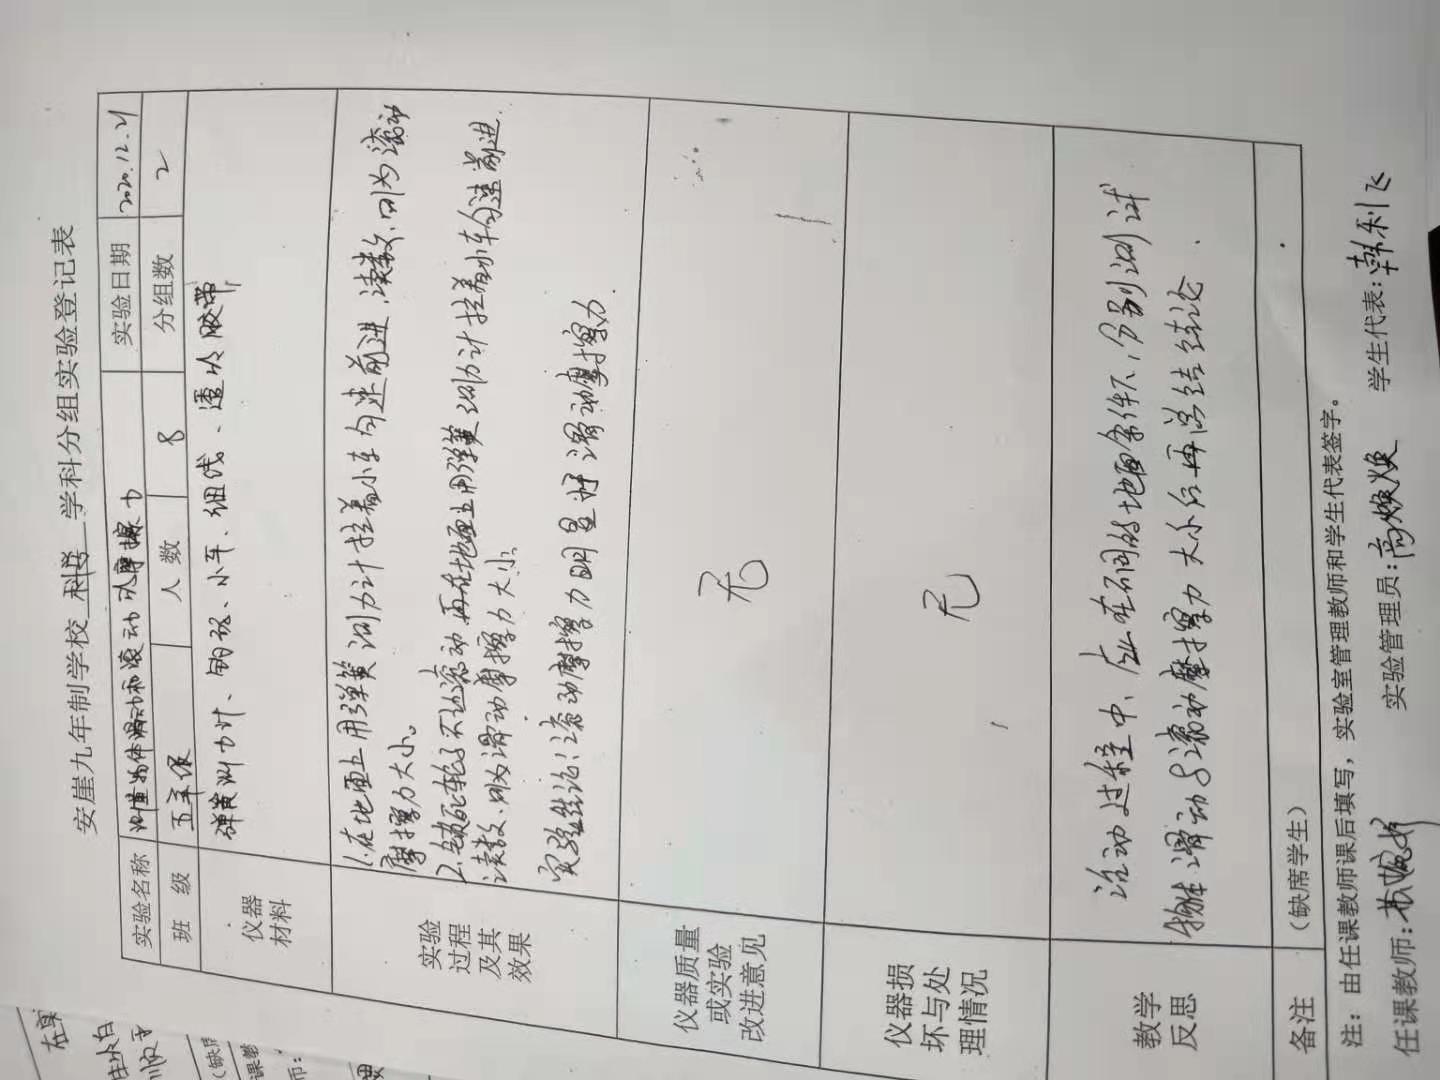 安崖九年制学校 科学 学科分组实验登记表
实验名称 测量物体滑动和滚动的摩擦力 实验日期 2020.12.21
班 级 五年级 人 数 8 分组数 2
仪器
材料
弹簧测力计、钩码、小车、细线、透明胶带
实验
过程
及其
效果
1.在地面上用弹簧测力计拉着小车匀速前进,读数,即为滚动
摩擦力大小。
2.锁死车轮子不让滚动再在地面上用弹簧测力计拉着小车匀速前进
读数,即为滑动摩擦力大小。
实验结论:滚动摩擦力明显 滑动摩擦力
仪器质量
或实验
改进意见
无
仪器损
坏与处
理情况
无
教学
反思
活动过程中,应在不同的地面条件下,分别测试
物体滑动&滚动摩擦力大小后再总结结论.
备注 (缺席学生)
注:由任课教师课后填写,实验室管理教师和学生代表签字。
任课教师: 实验管理员:高焕焕 学生代表:韩利飞
在桌
(缺席